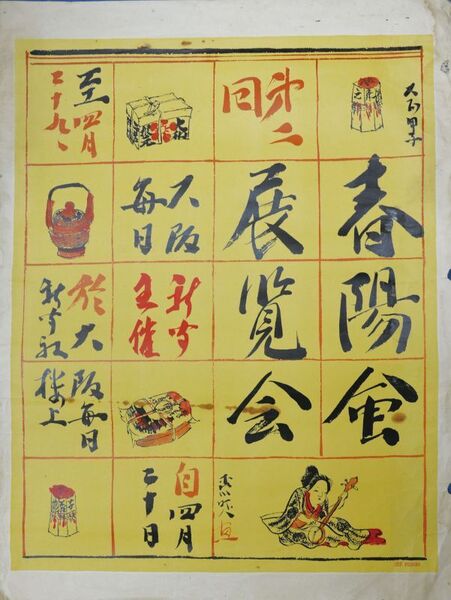 春陽会
第二回
展覧会
大阪毎日
新聞主催
自四月
二十日
至四月
二十九日
於大阪毎日
新聞社
楼上